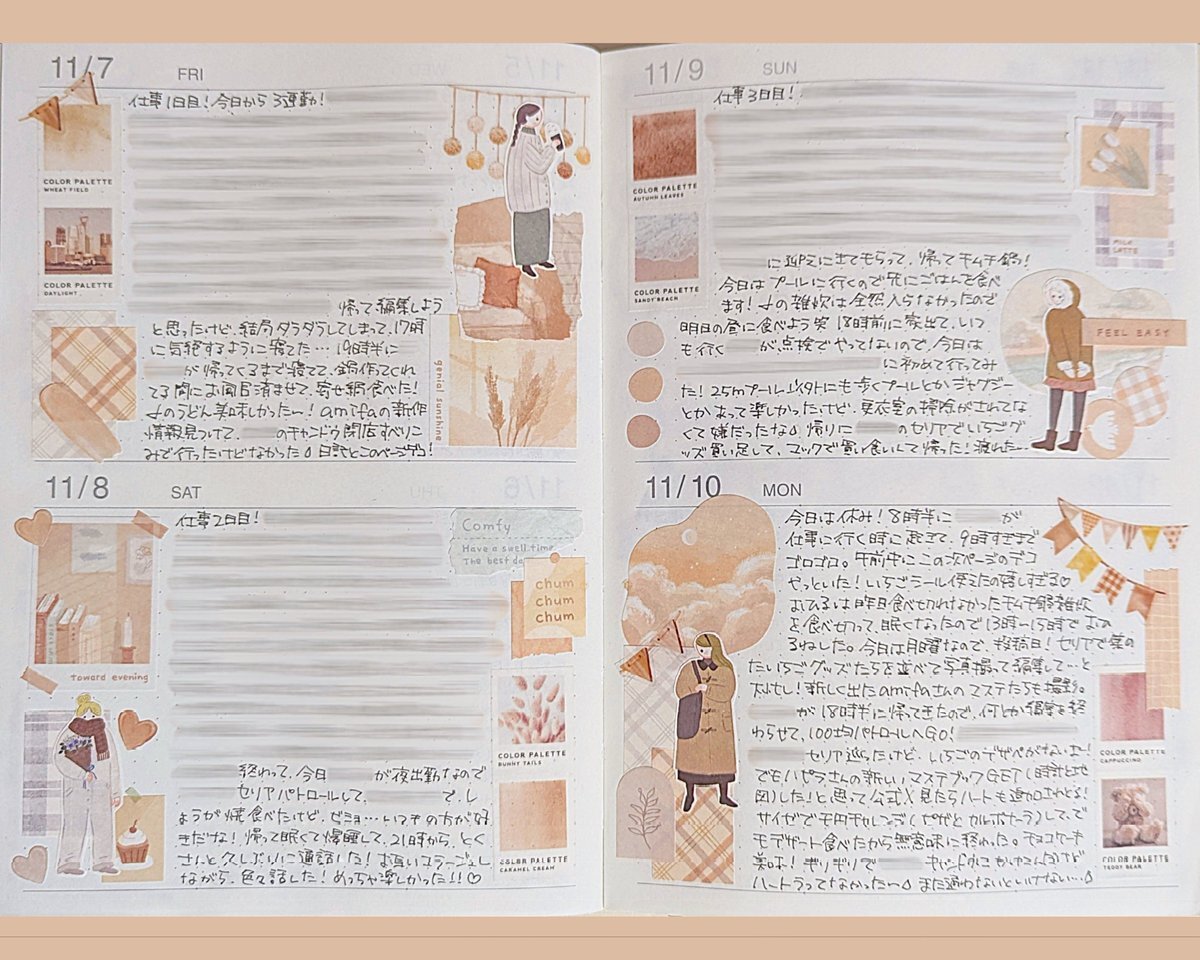 11/7 FRI
仕事1日目!今日から3連勤!
帰って編集しよう
と思ったけど、結局ダラダラしてしまって、17時
に気絶するように寝てた…19時半に
が帰ってくるまで寝てて、鍋作ってくれ
てる間にお風呂済ませて、寄せ鍋食べた!
〆のうどん美味しかった〜!amifaの新作
情報見つけて、 のキャンドゥ閉店すべりこ
みで行ったけどなかった 日記とこのページデコ!
COLOR PALETTE
WHEAT FIELD
COLOR PALETTE
DAYLIGHT
genial sunshine
11/8 SAT
仕事2日目!
終わって、今日 が夜出勤なので
セリアパトロールして、 で、し
ょうが焼食べたけど、ビミョ…いつもの方が好
きだな!帰って眠くて爆睡して、21時から、とく
さんと久しぶりに通話した!お互いコラージュし
ながら、色々話した!めっちゃ楽しかった!!♡
toward evening
Comfy
Have a swell time
The best da
chum
chum
chum
COLOR PALETTE
BUNNY TAILS
COLOR PALETTE
CARAMEL CREAM
11/9 SUN
仕事3日目!
に迎えにきてもらって、帰ってキムチ鍋!
今日はプールに行くので先にごはんを食べ
ます!〆の雑炊は全然入らなかったので
明日の昼に食べよう笑 18時前に家出て、いつ
も行く が、点検でやってないので、今日は
に初めて行ってみ
た!25mプール以外にも歩くプールとかジャグジー
とかあって楽しかったけど、更衣室の掃除がされてな
くて嫌だったな 帰りに のセリアでいちごグ
ッズ買い足して、マックで買い食いして帰った!疲れた…
COLOR PALETTE
AUTUMN LEAVES
COLOR PALETTE
SANDY BEACH
MILK
LATTE
FEEL EASY
11/10 MON
今日は休み!8時半に が
仕事に行く時に起きて、9時すぎまで
ゴロゴロ。午前中にこの次ページのデコ
やっといた!いちごシール使えたの嬉しすぎる♡
おひるは昨日食べ切れなかったキムチ鍋雑炊
を食べ切って、眠くなったので13時〜15時でおひ
るねした。今日は月曜なので、投稿日!セリアで集め
たいちごグッズたちを並べて写真撮って編集して…と
大忙し!新しく出たamifaさんのマステたちも撮影。
が18時半に帰ってきたので、何とか編集を終
わらせて、100均パトロールへGO!
セリア巡ったけど、いちごのデザペがないよー!
でもハピラさんの新しいマステブックGET(時計と地
図)した!と思って公式X見たらハートも追加されとる!
サイゼでモ円チャレンジ(ピザとカルボナーラ)して、で
もデザート食べたから無意味に終わった。チョコケーキ
美味!ギリギリで キャンドゥにかけこんだけど
ハートうってなかった〜 また通わないといけない…
COLOR PALETTE
CAPPUCCINO
COLOR PALETTE
TEDDY BEAR